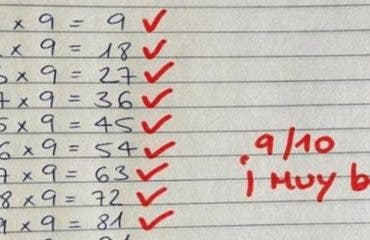 × 9 = 9 ✓
× 9 = 18 ✓
3 × 9 = 27 ✓
× 9 = 36 ✓
5 × 9 = 45 ✓
6 × 9 = 54 ✓
7 × 9 = 63 ✓
8 × 9 = 72 ✓
9 × 9 = 81 ✓
9/10
¡ MUY